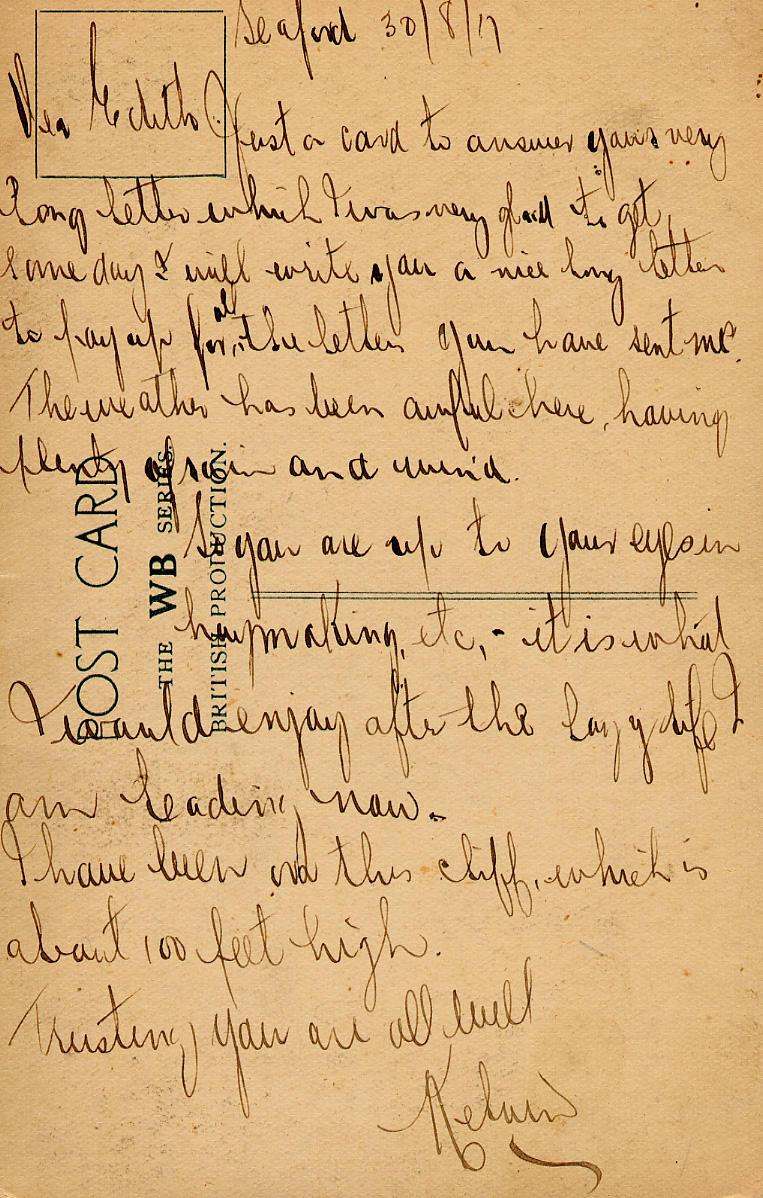 Seaford 30/8/17
Dear Edith Just a card to answer yours very
long letter which I was very glad to get,
some day I will write you a nice long letter
to pay up for all the letters you have sent me.
The weather has been awful here, having
plenty of rain and wind.
So you are up to your eyes in
haymaking, etc, - it is what
I would enjoy after the lazy life I
am leading now.
I have been on this cliff, which is
about 100 feet high.
Trusting you are all well
Kelvin
POST CARD
THE WB SERIES.
BRITISH PRODUCTION.